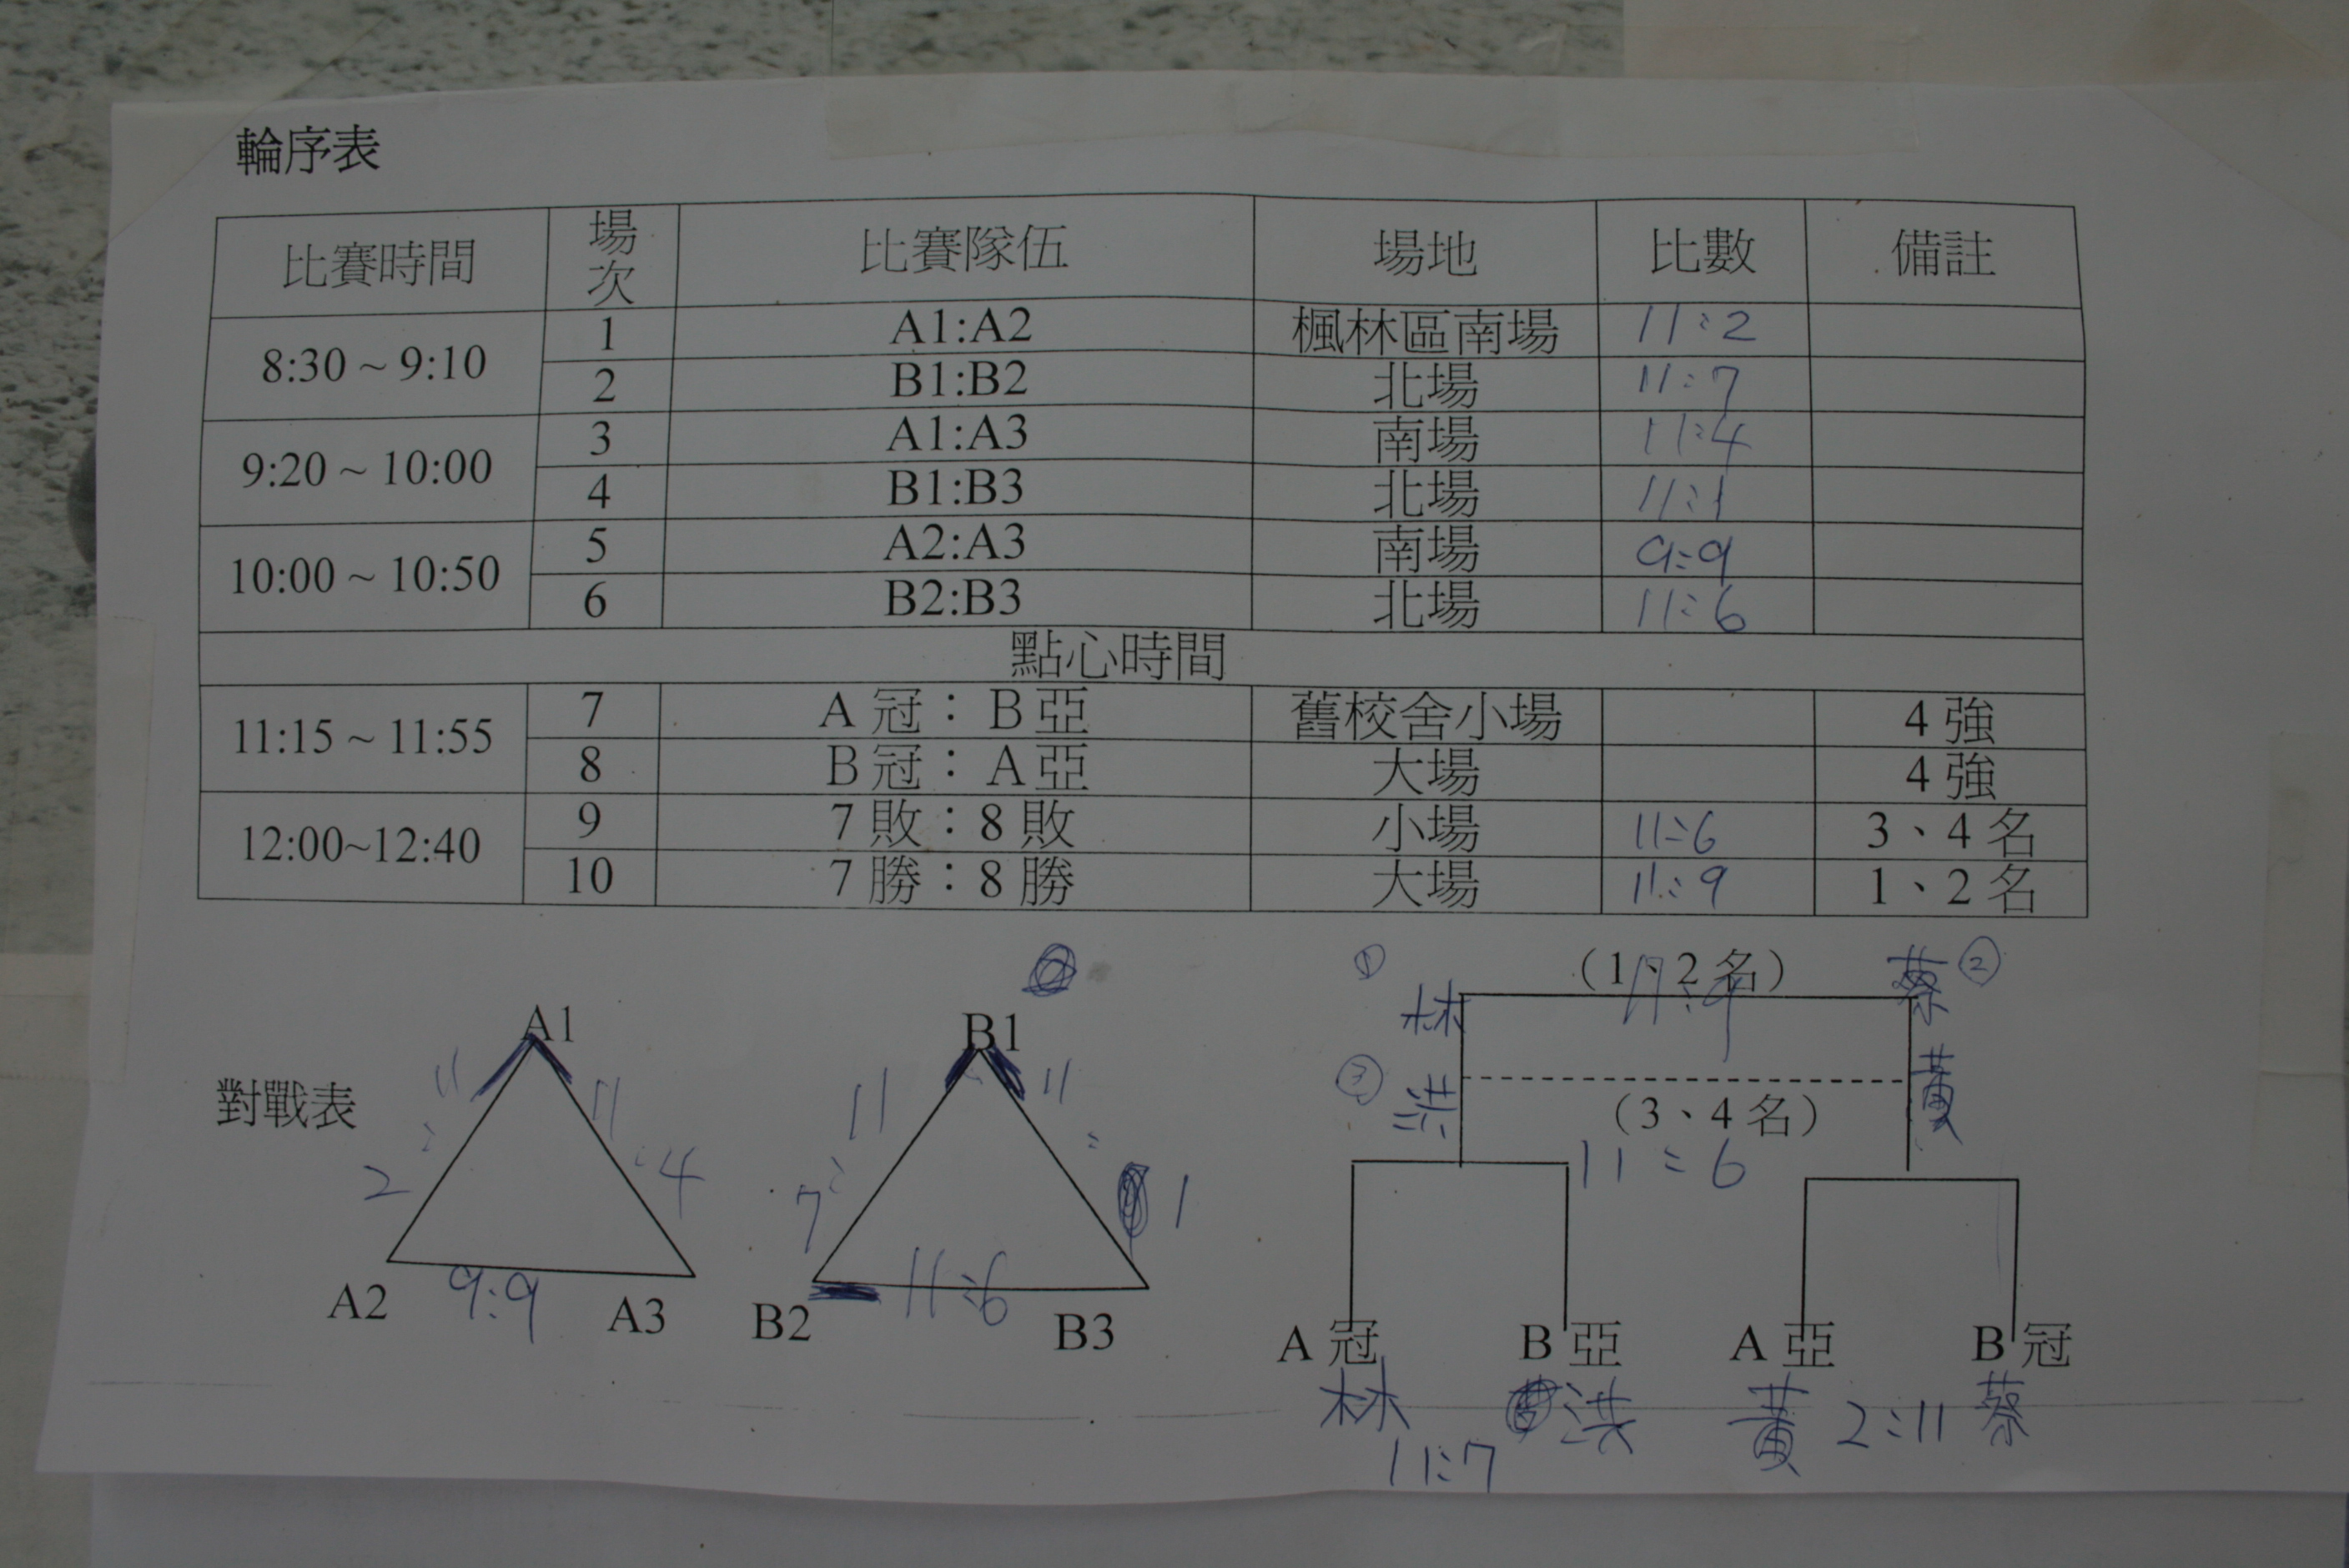 輪序表
比賽時間 場次 比賽隊伍 場地 比數 備註
8:30 ~ 9:10 1 A1:A2 楓林區南場 11:2
2 B1:B2 北場 11:7
9:20 ~ 10:00 3 A1:A3 南場 11:4
4 B1:B3 北場 11:1
10:00 ~ 10:50 5 A2:A3 南場 9:9
6 B2:B3 北場 11:6
點心時間
11:15 ~ 11:55 7 A 冠：B 亞 舊校舍小場 4 強
8 B 冠：A 亞 大場 4 強
12:00~12:40 9 7 敗：8 敗 小場 11:6 3、4 名
10 7 勝：8 勝 大場 11:9 1、2 名
對戰表
A1
11:2
11:4
A2 9:9 A3
B1
11:7
11:1
B2 11:6 B3
① 林 (1、2 名) 蔡 ②
11:9
③ 洪 黃
(3、4 名)
11:6
A 冠 B 亞 A 亞 B 冠
林 洪 黃 2:11 蔡
11:7